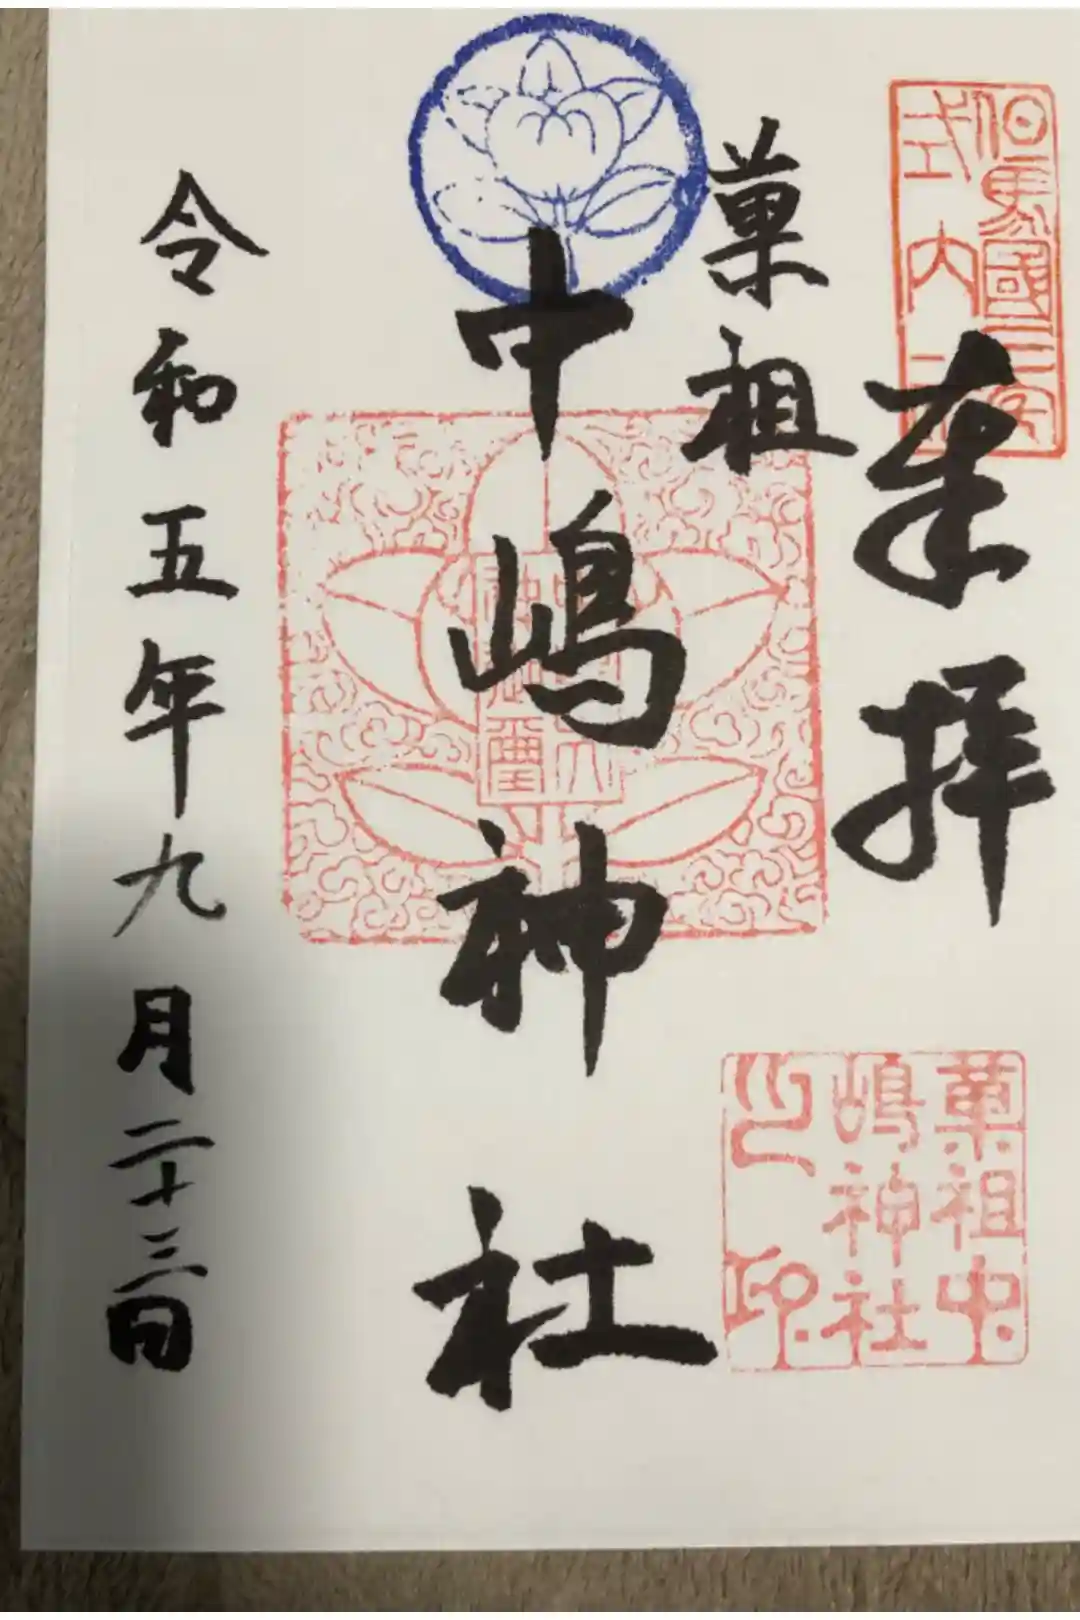 但馬國三宮
式内
奉拝
菓祖
中嶋神社
菓祖中
嶋神社
之印
令和五年九月二十三日